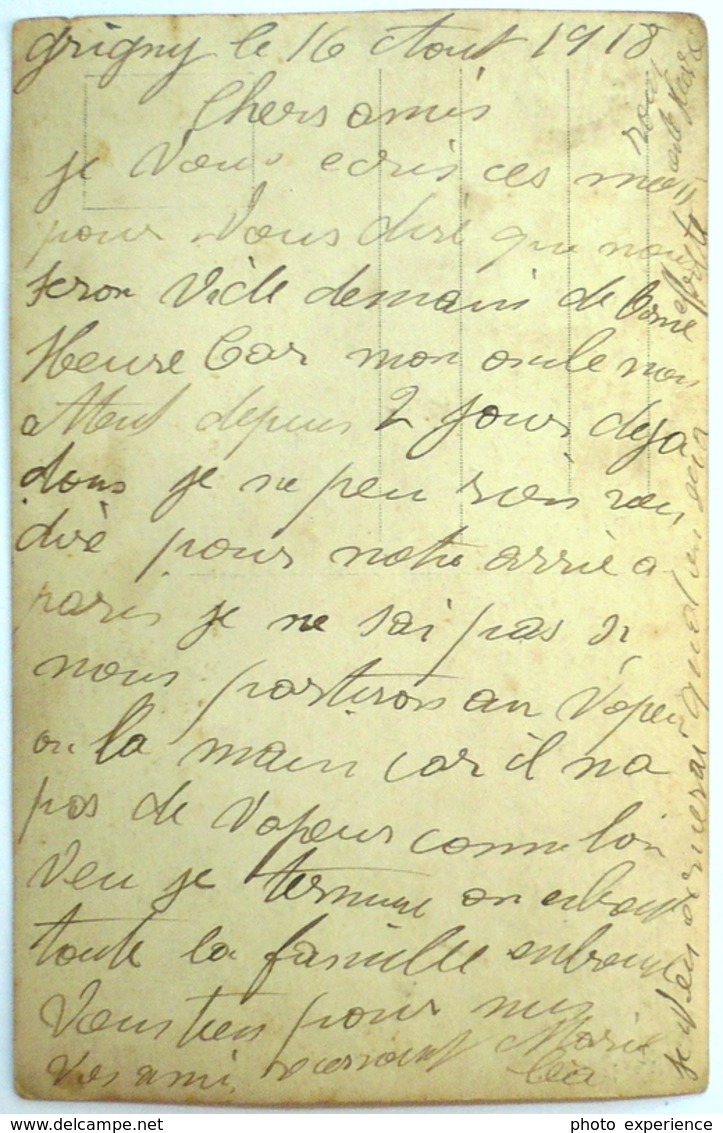 grigny le 16 Aout 1918
Chers amis
je Vous ecris ces mots
pour Vous dire que nous
seron Vide demain de bonne
Heure Car mon oncle nous
attent depuis 2 jours deja
dons je ne peu rien vou
dire pour notre arrié a
paris je ne sai pas si
nous partirons au Vapeu
ou la main car il na
pas de Vapeur comme lon
Veu je termine on enbrass
toute la famille enbrasse
Vous tiens pour nus
Vos ami Marie
Lea
je Vous ecrirai quand on sera
photo experience